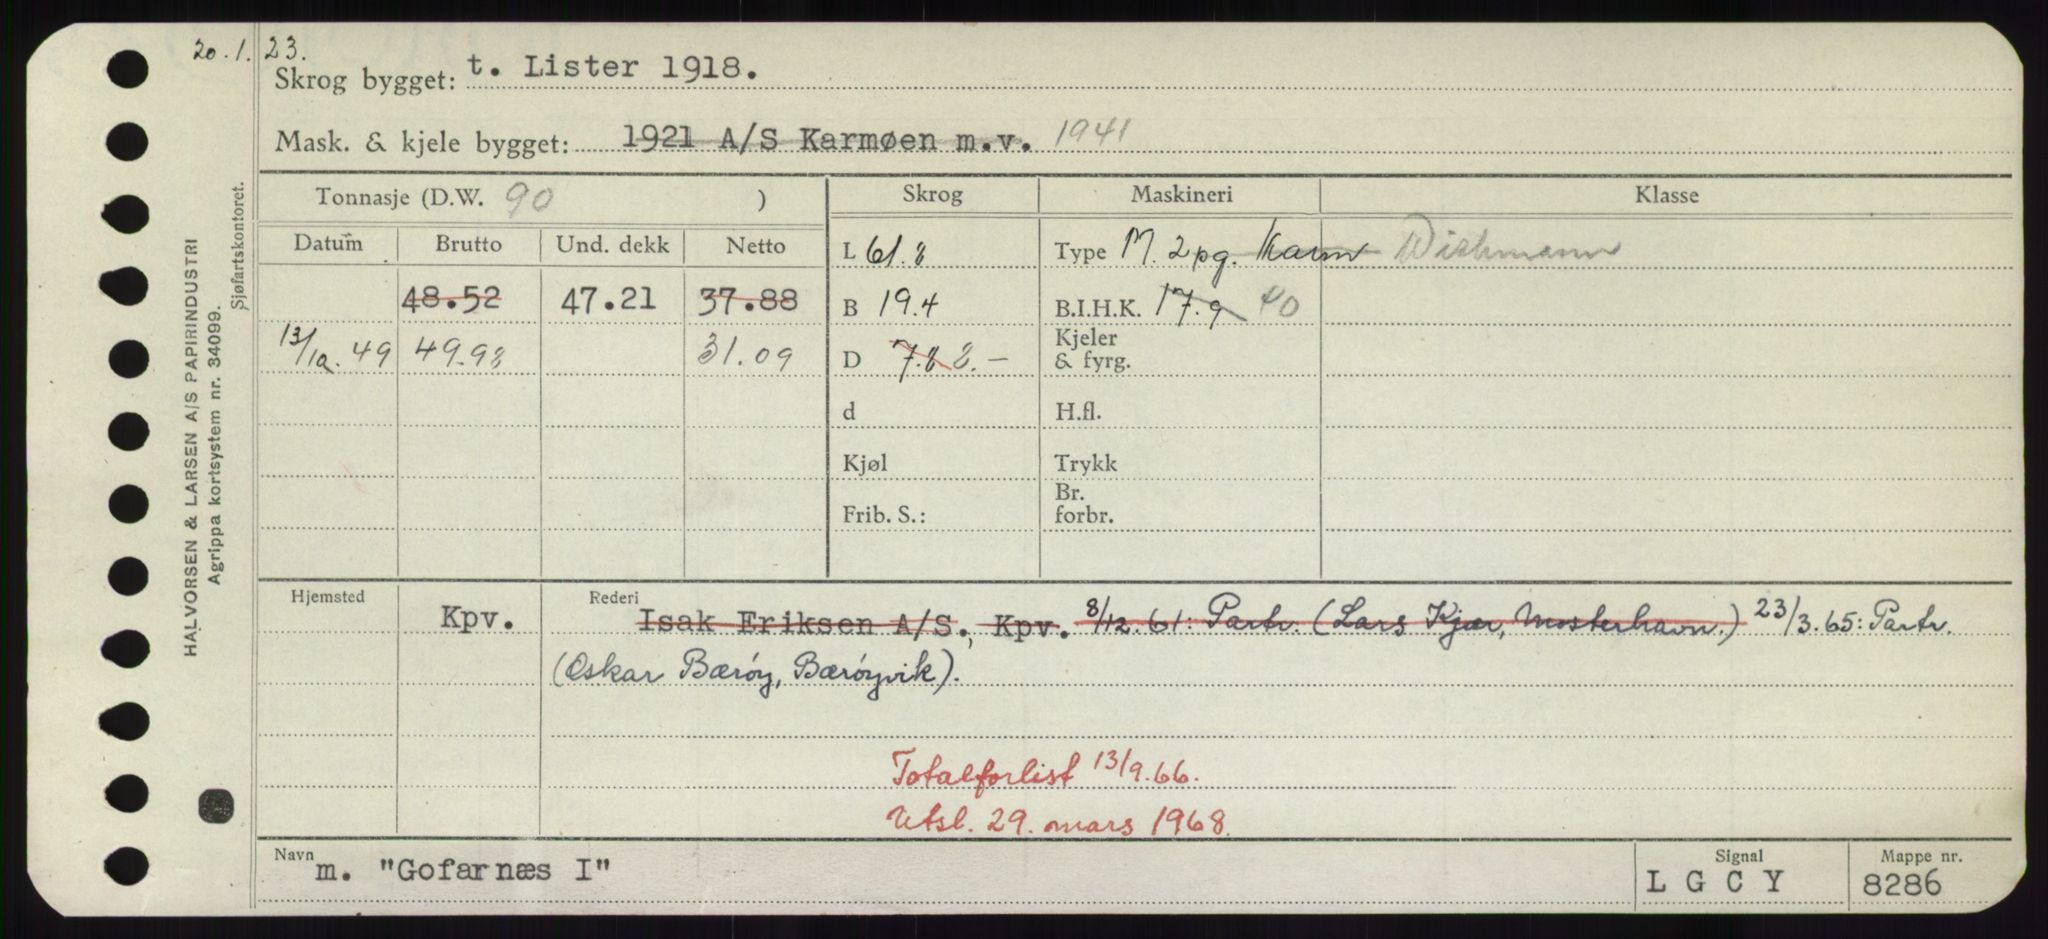 20.1.23.
Skrog bygget: t. Lister 1918.
Mask. & kjele bygget: 1921 A/S Karmøen m.v. 1941
Tonnasje (D.W. 90 ) Skrog Maskineri Klasse
Datum Brutto Und. dekk Netto L 61.8 Type M. 2 pg. Karm Wichmann
48.52 47.21 37.88 B 19.4 B.I.H.K. 17.9 40
13/10.49 49.98 31.09 D 7.8 8.- Kjeler
& fyrg.
d H.fl.
Kjøl Trykk
Br.
Frib. S.: forbr.
Hjemsted Kpv. Rederi Isak Eriksen A/S., Kpv. 8/12.61: Partr. (Lars Kjær, Mosterhavn.) 23/3.65: Partr.
(Oskar Bærøy, Bærøyvik).
Totalforlist 13/9.66.
Utsl. 29. mars 1968.
Navn m. "Gofarnæs I" Signal L G C Y Mappe nr. 8286
HALVORSEN & LARSEN A/S PAPIRINDUSTRI
Agrippa kortsystem nr. 34099.
Sjøfartskontoret.